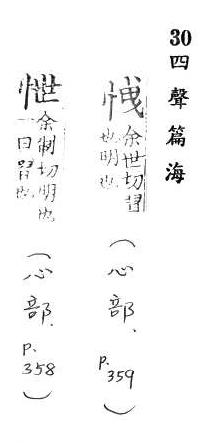 30四聲篇海
忚余世切習也明也(心部、p.359)
怈余制切明也一曰習也(心部、p.358)